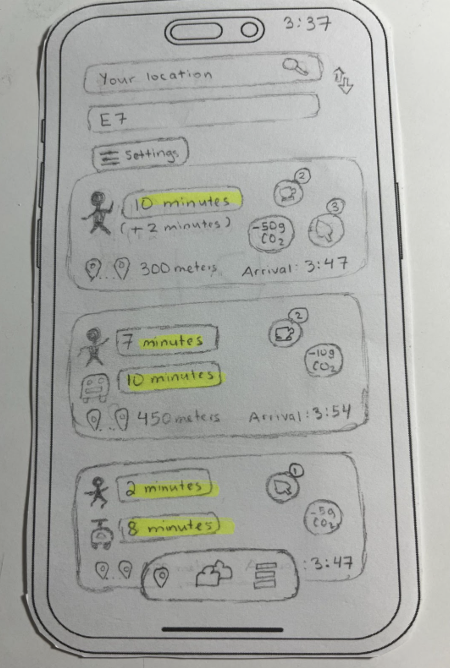 3:37
Your location
E7
Settings
2
10 minutes
(+2 minutes)
-50g
CO2
3
300 meters Arrival: 3:47
2
7 minutes
-10g
CO2
10 minutes
450 meters Arrival: 3:54
1
2 minutes
-5g
CO2
8 minutes
: 3:47